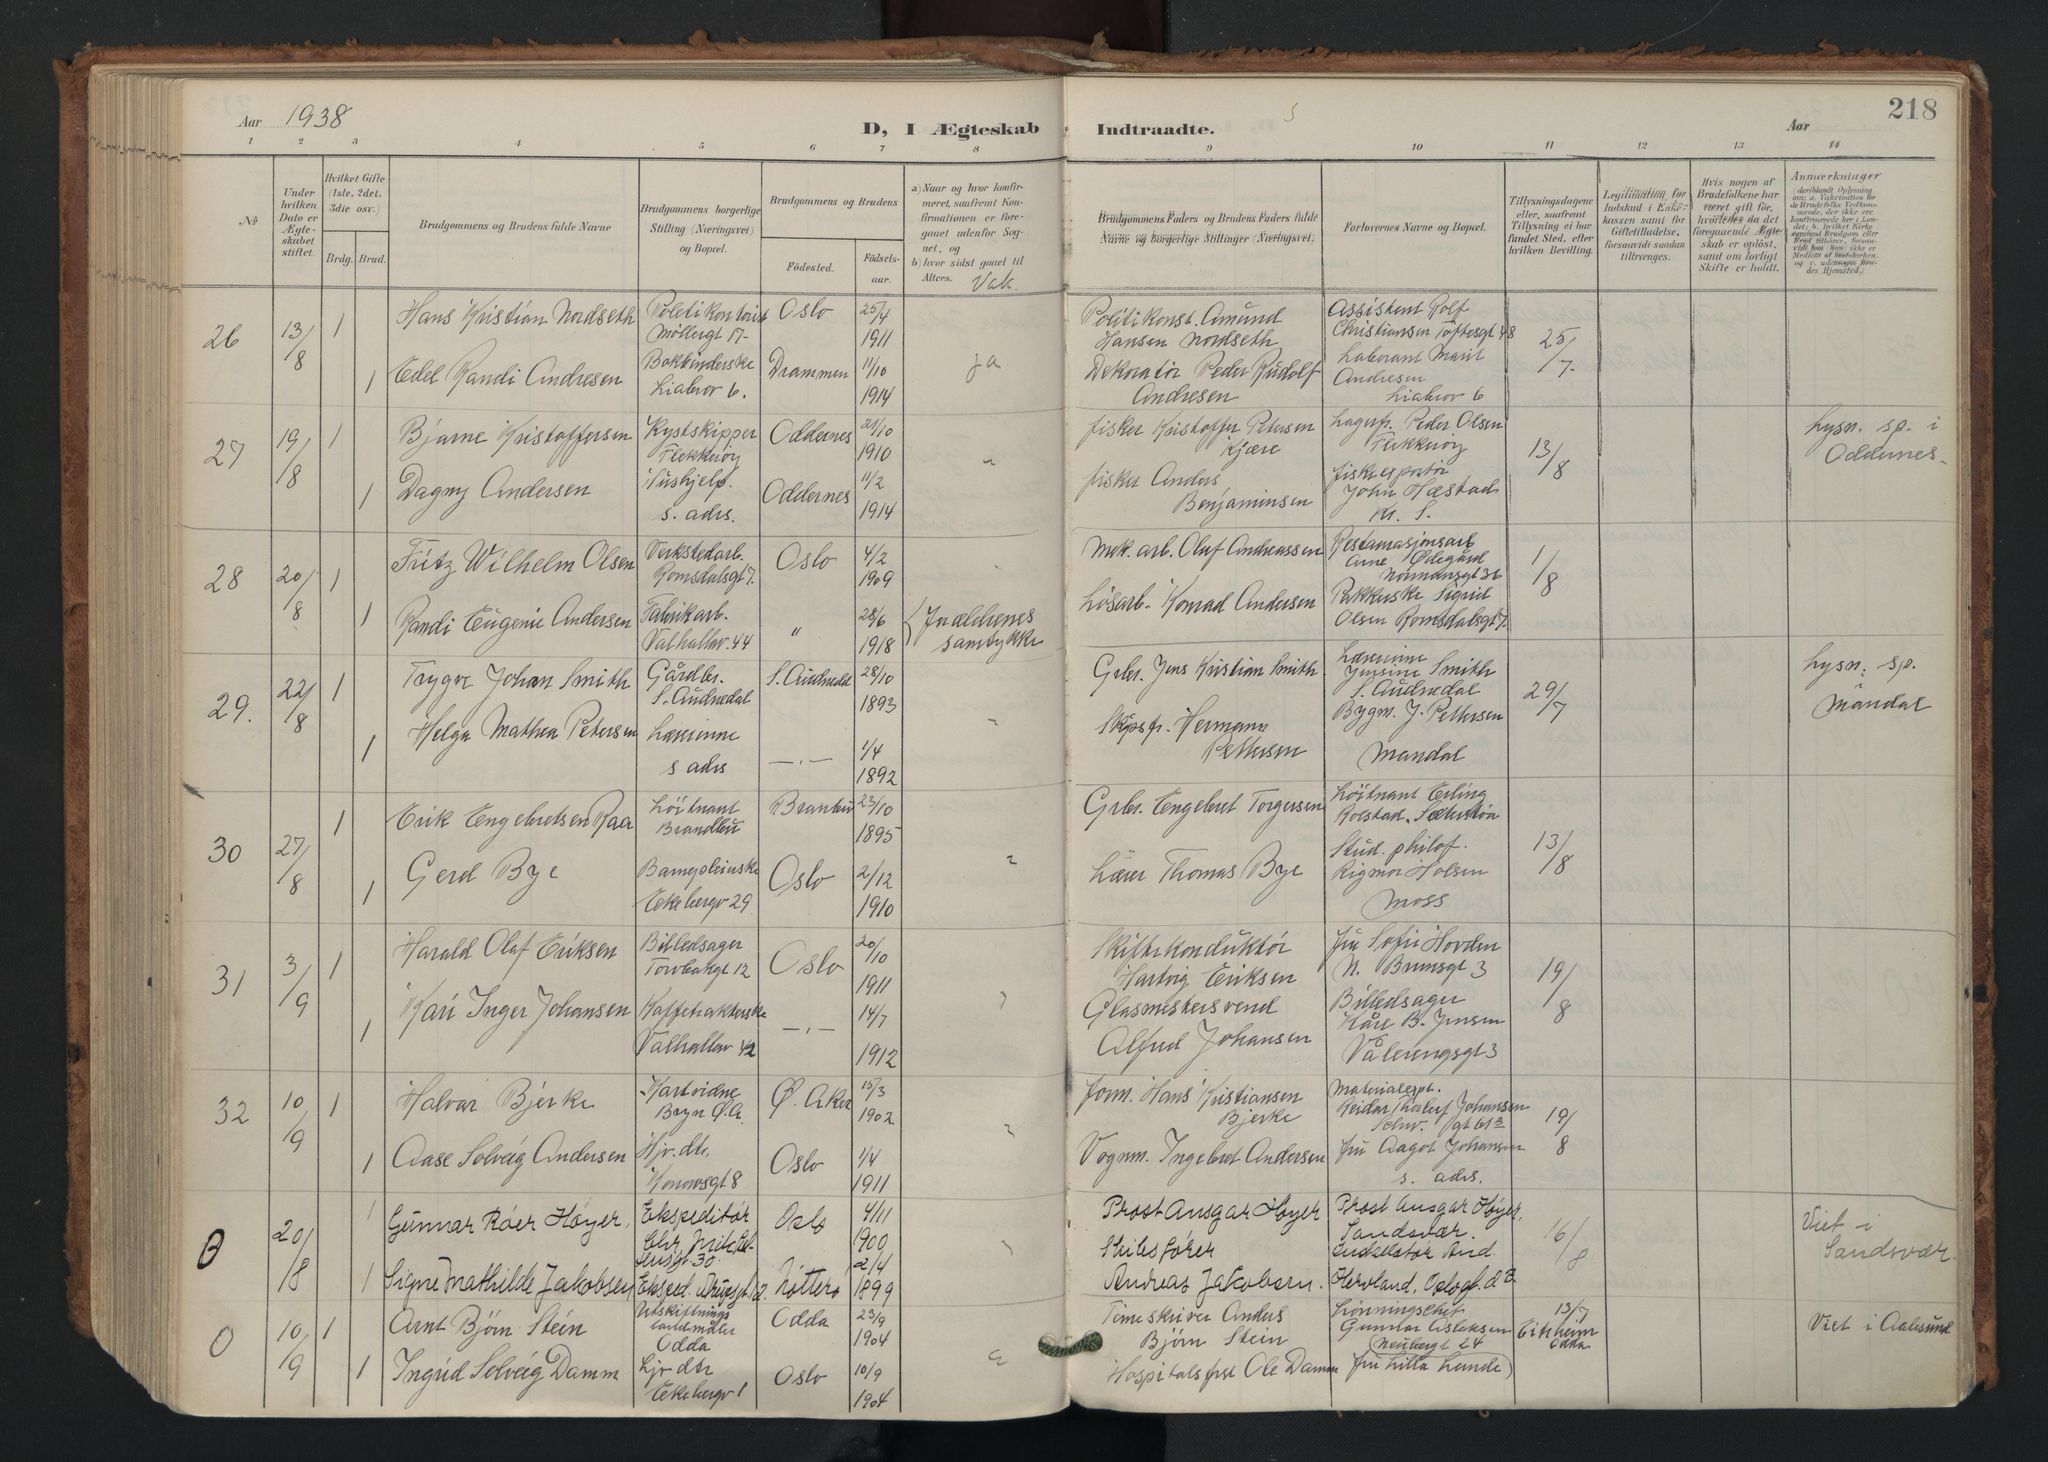 Aar 1938
D, I Ægteskab Indtraadte.
Aar
218
1 2 3 4 5 6 7 8 9 10 11 12 13 14
No
Under hvilken Dato er Ægteskabet stiftet.
Hvilket Gifte (1ste, 2det, 3die osv.)
Brdg. Brud.
Brudgommens og Brudens fulde Navne
Brudgommens borgerlige Stilling (Næringsvei) og Bopæl.
Brudgommens og Brudens
Fødested. Fødselsaar.
a) Naar og hvor konfirmeret, saafremt Konfirmationen er foregaaet udenfor Sognet, og
b) hvor sidst gaaet til Alters. Vak.
Brudgommens Faders og Brudens Faders fulde Navne og borgerlige Stillinger (Næringsvei)
Forlovernes Navne og Bopæl.
Tillysningsdagene eller, saafremt Tillysning ei har fundet Sted, efter hvilken Bevilling.
Legitimation for Indskud i Enkekassen samt for Giftetilladelse, forsaavidt saadan tiltrænges.
Hvis nogen af Brudefolkene har været gift før, hvorledes da det foregaaende Ægteskab er opløst, samt om lovligt Skifte er holdt.
Anmærkninger
26 13/8 1 Hans Kristian Nordseth Politikontorist Oslo 25/4 Politikonst. Amund Assistent Rolf
Møllergt 17- 1911 Hansen Nordseth Christiansen Toftesgt 48 25/7
1 Edel Randi Andresen Bokbinderske Drammen 11/10 ja Dekoratør Peder Rudolf Laborant Marit
Liabrov 6. 1914 Andresen Andresen
Liabrov 6
27 19/8 1 Bjarne Kristoffersen Kystskipper Oddernes 21/10 fisker Kristoffer Petersen Lagerf. Peder Olsen lysn. sp. i
Flekkerøy 1910 " Kjære Flekkerøy 13/8 Oddernes-
1 Dagny Andersen Hushjelp. Oddernes 11/2 fisker Anders fiskeexportør
s. adrs. 1914 Benjaminsen John Hæstad
Kr. S.
28 20/8 1 Fritz Wilhelm Olsen Verkstedarb. Oslo 4/2 Mek. arb. Oluf Andreassen Arne Ødegård 1/8
Romsdalsgt 7. 1909 Normannsgt 36
1 Randi Eugenie Andersen Fabrikarb. " 28/6 Foreldrenes Løsarb. Konrad Andersen Pakkerske Sigrid
Valhallav. 44 1918 samtykke Olsen Romsdalsgt 7.
29. 22/8 1 Trygve Johan Smith Gårdbr. S. Audnedal 28/10 Grbr. Jens Kristian Smith Lærerinne lysn. sp.
S. Audnedal 1893 " Jensine Smith 29/7 Mandal
S. Audnedal
1 Helga Mathea Petersen Lærerinne —"— 1/4 Skipsfr. Hermann Bygm. J. Pettersen
s adrs 1892 Pettersen Mandal
30 27/8 1 Erik Engebretsen Raa Løitnant Branbu 23/10 Grbr. Engebret Torgersen Løitnant Erling
Brandbu 1895 Rolstad
1 Gerd Bye Barnepleierske Oslo 2/12 " Lærer Thomas Bye Stud. philof. 13/8
Ekebergv 29 1910 Rigmor Holsen
Moss
31 3/9 1 Harald Olaf Eriksen Billedsager Oslo 20/10 Skiftekonduktør fru Sofie Hovden
1911 Hartvig Eriksen N. Brunsgt 3 19/8
1 Kari Inger Johansen Kaffetrakterske —"— 14/7 Glasmestersvend Billedsager
Valhallav 42 1912 Alfred Johansen Kåre B. Jensen
Vålerengsgt 3
32 10/9 1 Halvar Bjerke Ø. Aker 15/3 Form. Hans Kristiansen Materialexpt.
Bryn Ø. A 1902 Bjerke Reidar Thorleif Johansen 19/8
1 Aase Solveig Andersen Hjv. dtr. Oslo 1/4 Vognm. Ingebret Andersen fru Aagot Johansen
Konowsgt 8 1911 s. adrs.
0 20/8 1 Gunnar Róer Høyer, Ekspeditør Oslo 4/11 Prost Ansgar Høyer Prost Ansgar Høyer, Viet i
1900 Skibsfører Sandsvær. 16/8 Sandsvær.
1 Signe Mathilde Jakobsen Nøtterø 2/4 1899 Andreas Jakobsen. Inspektør And. Hervland, Oslo
0 10/9 1 Arnt Bjørn Stein Utskiftnings Odda 23/9 Timeskriver Anders Lønningschef 13/7 Viet i Aalesund
Odda 1904 Bjørn Stein Gunnar Aslaksen Eitrheim
Neubergt 24 Odda
1 Ingrid Solveig Damm hjv dtr Oslo 10/9 Ole Damm fru Lilla Lunde)
Ekebergv 1 1904